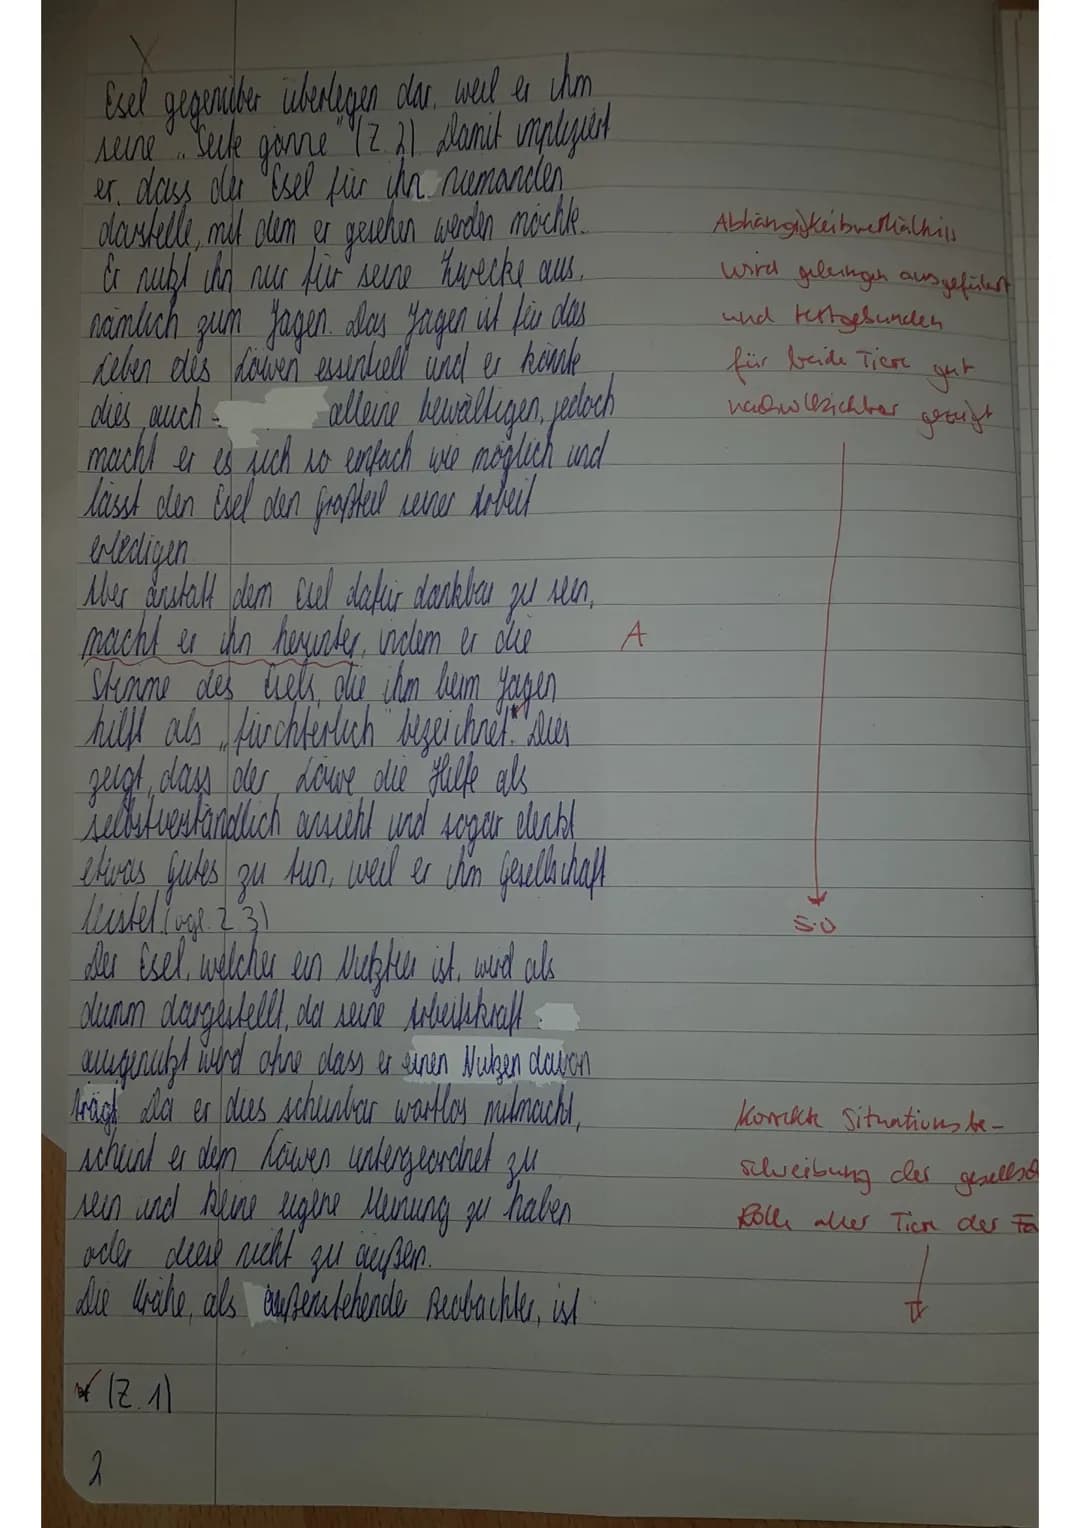 Esel gegenüber überlegen dar, weil er ihm
seine „Seite gönne" (Z. 2). Damit impliziert
er, dass der Esel für ihn niemanden
darstelle, mit dem er gesehen werden möchte.
Er nutzt ihn nur für seine Zwecke aus,
nämlich zum Jagen. Das Jagen ist für das
Leben des Löwen essentiell und er könnte
dies auch alleine bewältigen, jedoch
macht er es sich so einfach wie möglich und
lässt den Esel den Großteil seiner Arbeit
erledigen
Aber anstatt dem Esel dafür dankbar zu sein,
macht er ihn herunter, indem er die
Stimme des Esels, die ihm beim Jagen
hilft als „fürchterlich" bezeichnet.* Dies
zeigt, dass der Löwe die Hilfe als
selbstverständlich ansieht und sogar denkt
etwas gutes zu tun, weil er ihm Gesellschaft
leistet (vgl. Z. 3)
Der Esel, welcher ein Nutztier ist, wird als
dumm dargestellt, da seine Arbeitskraft
ausgenutzt wird ohne dass er einen Nutzen davon
trägt. Da er dies scheinbar wortlos mitmacht,
scheint er dem Löwen untergeordnet zu
sein und keine eigene Meinung zu haben
oder diese nicht zu äußern.
Die Krähe, als außenstehender Beobachter, ist
* (Z. 1)
2
Abhängigkeitsverhältnis
wird gelungen ausgeführt
und textgebunden
für beide Tiere gut
nachvollziehbar gezeigt
A
s.o
Korrekte Situationsbe-
schreibung der gesellsch
Rolle aller Tiere der Fa